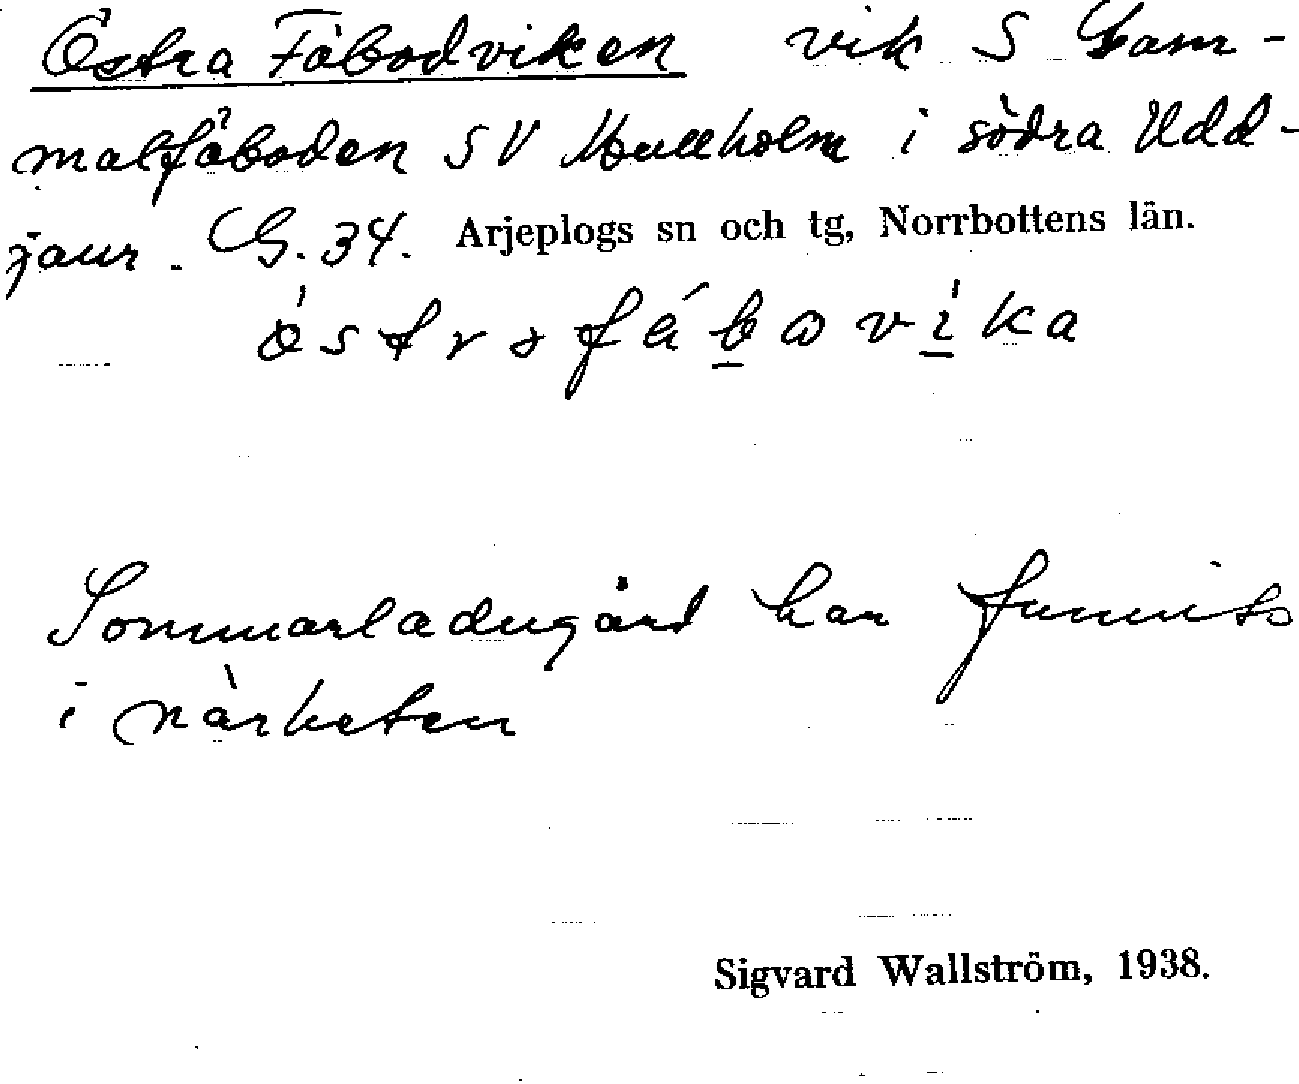 Östra Fäbodviken vik S Gam-
malfäboden SV Mullholm i södra Udd-
jaur. G. 34. Arjeplogs sn och tg, Norrbottens län.
Sommarladugård har funnits
i närheten
Sigvard Wallström, 1938.